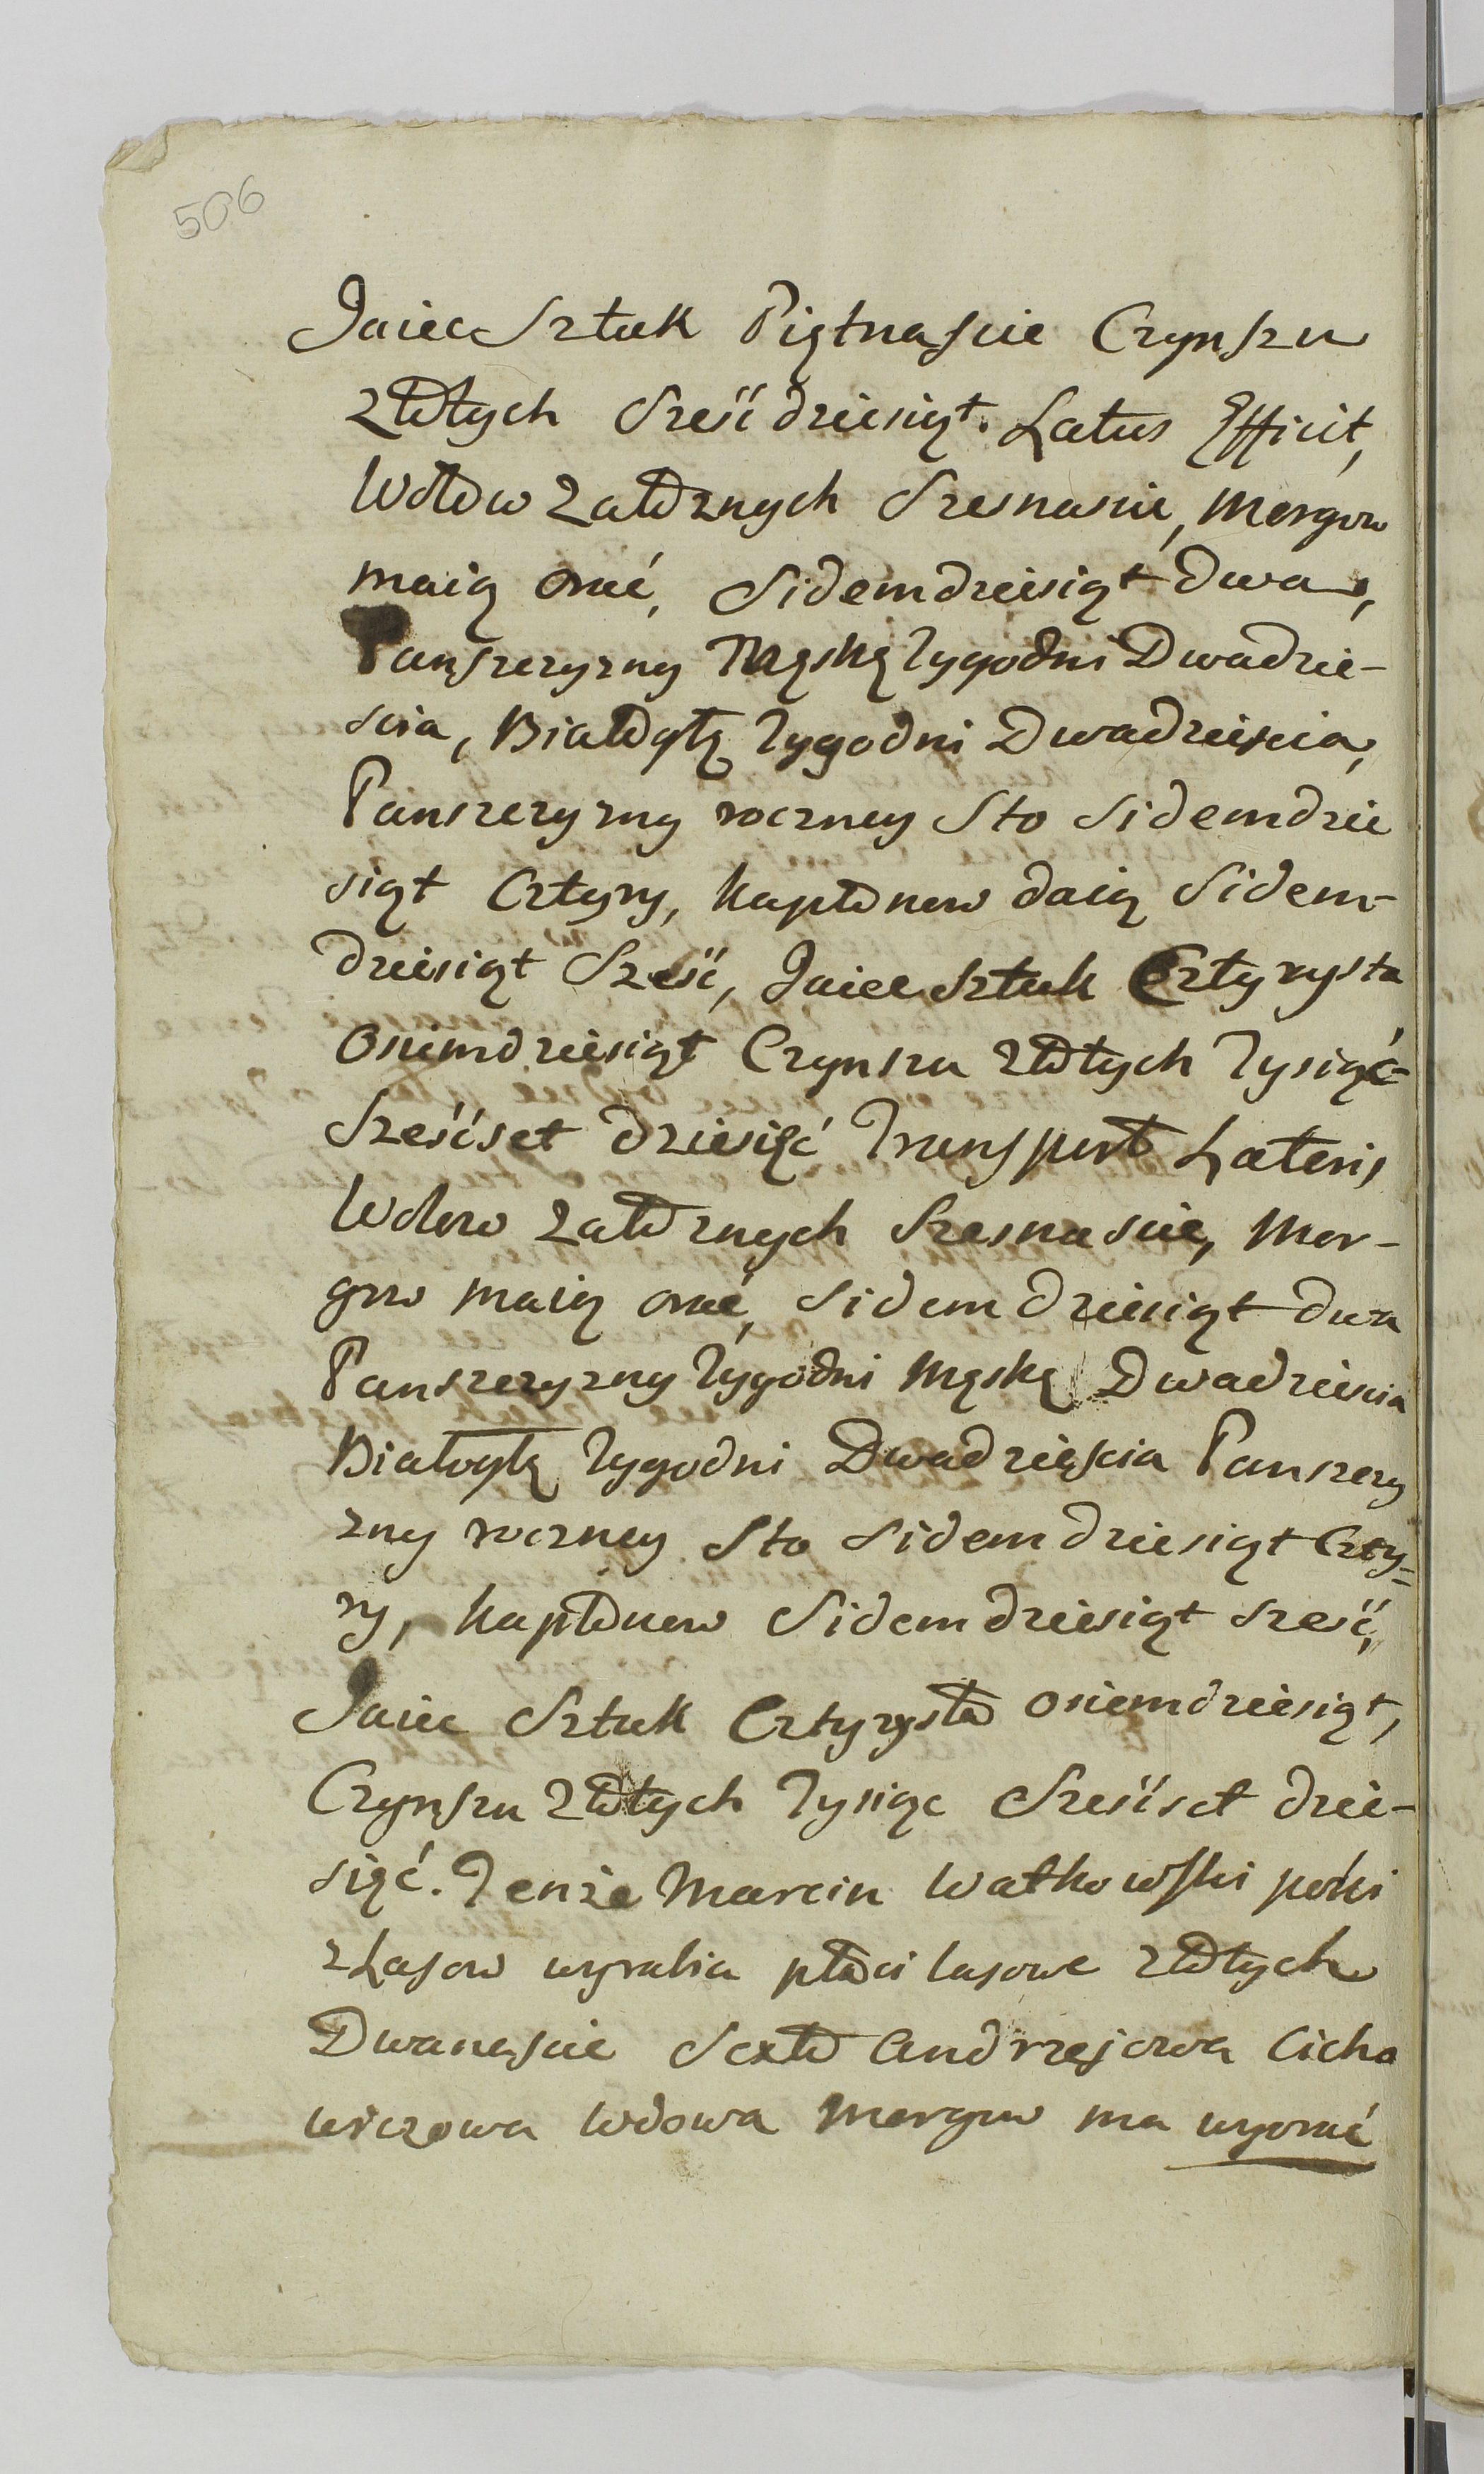 506
Jaiec Sztuk Piętnaście Czynszu
złotych sześćdziesiąt. Latus Efficit,
Wołow załoznych Szesnascie, Morgow
maią orać, Sidemdziesiąt dwa,
Panszczyzny Męską Tygodni Dwadzie-
scia, Białogłą Tygodni Dwadziescia,
Panszczyzny roczney Sto Sidemdzie
siąt Cztyry, kapłonow daią Sidem-
dziesiąt Sześć, Jaiec sztuk Cztyrysta
Osiemdziesiąt Czynszu złotych Tysiąc
Sześćset dziesięć Transport Lateris
Wołow załoznych Szesnascie, Mor-
gow maią orać, Sidemdziesiąt dwa
Panszczyzny Tygodni Męską Dwadziescia
Białogłą Tygodni Dwadziescia Panszczy
zny roczney Sto Sidemdziesiąt Czty=
ry, kapłonow Sidemdziesiąt sześć,
Jaiec Sztuk Cztyrysta osiemdziesiąt,
Czynszu złotych Tysiąc Sześćset dzie-
sięć. Tenże Marcin Watkowski poki
z Lasow wyrabia płaci lasowe złotych
Dwanascie Sexto Andrzejowa Cicho
wiczowa Wdowa Morgow ma wyorać